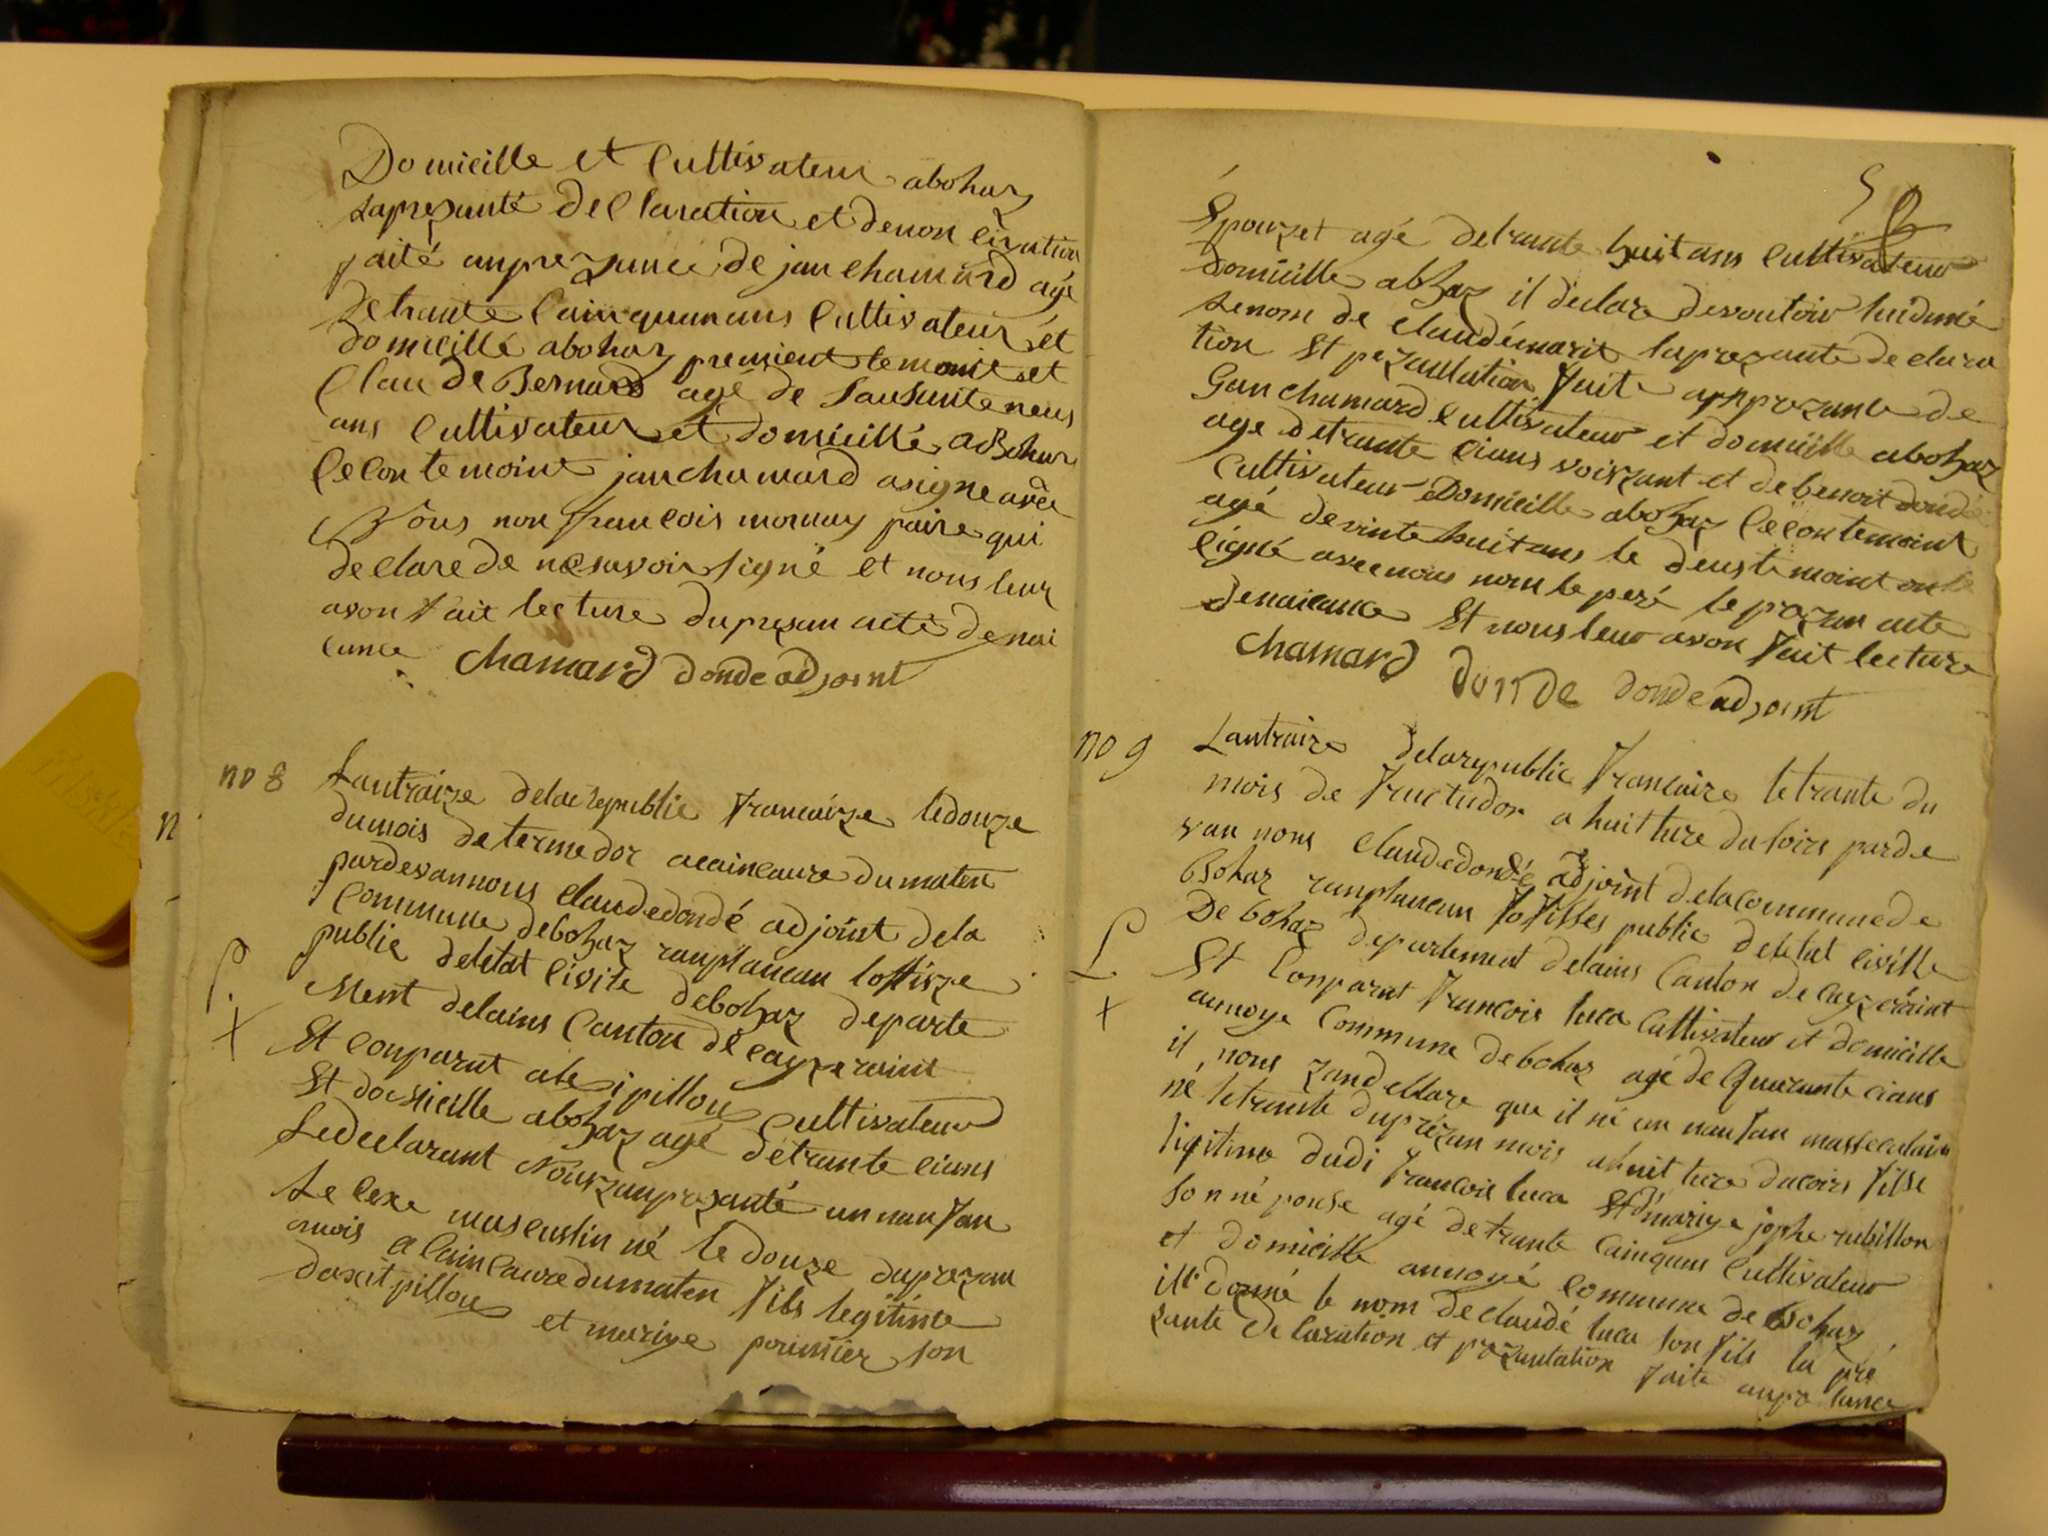 Domicille et Cultivateur abohaz
Laprezante declaration et denoncination
faité anprezance de jan chamard agé
detrante Cainquanans Cultivateur et
domicillé abohaz premient temoint et
Claude Bernard agé de Sausente neus
ans Cultivateur et domicillé aBohaz
lecon temoint jan chamard asigne avec
Nous non françois mornay paire qui
declare de nesavoir signé et nous leur
avon fait lecture du prezan acte denai
cance chamard donde adjoint
no 8 Lantraize delarepublic francaize ledouze
n dumois determedor acaincaure dumaten
pardevannous claude dondé adjoint dela
Commune debohaz ranplancan loffisze
public deletat civile debohaz departe
ment delains Canton de cayzeraint
Et conparut alexi pillou Cultivateur
Et domicille abohaz agé detrante cians
Ledeclarant Nouszanprezanté un nanfan
Le cexe mascuslin né le douze duprezan
mois a caincaure dumaten fils legitime
daxit pillou et mariye poumier son
5
Epouzet agé detrante huit ans Cultivateur
domicille abohaz il declare devoutoir luidoné
Lenom de claudémarit laprezante declara
tion Et prezantation faite anprezance de
Gan chamard cultivateur et domicille abohaz
age detrante cians voiszant et de benoit dondé
Cultivateur Domicille abohaz lecon temoint
agé devinte huit ans le deus temoint onte
cigné avec nous non le peré le prezan acte
denaicance Et nous leur avon fait lecture
chamard donde donde adjoint
no 9 Lantraize delarepublic francaize letrante du
mois de fructudor a huit hure du soirs parde
van nous claudedondé adjoint delacommune de
Bohaz ranplancan lofisses public deletat civille
De bohaz departement delains Canton de cayzeraint
Et Conparut francois luca Cultivateur et domicille
aunoye Commune debohaz agé de Quarante cians
il nous zandeklare que il né un nanfan massecculain
né letrante duprézan mois ahuit hure ducoirs filse
ligitime dudi francois luca Et mariye jophe rubillon
sonné pouse agé detrante Cainquans Cultivateur
et domicille aunoyé commune de Bohaz
ill donné le nom declaudé luca son fils la pré
zante declaration et prezantation faite anpre zance